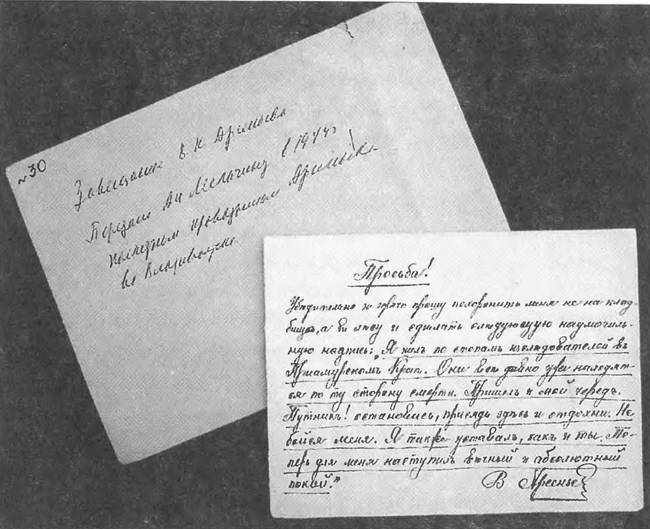 №30
Завещание В К Арсеньева
Передано Ан Мельчину в 1944г
последним проводником Арсеньева
во Владивостоке
Просьба!
Убедительно и горячо прошу похоронить меня не на клад-
бищѣ, а въ лѣсу и сдѣлать слѣдующую надмогиль-
ную надпись: „Я шелъ по стопамъ изслѣдователей въ
Приамурскомъ Краѣ. Они всѣ давно уже находят-
ся по ту сторону смерти. Пришелъ и мой чередъ.
Путникъ! остановись, присядь здѣсь и отдохни. Не
бойся меня. Я также уставалъ, какъ и ты. Те-
перь для меня наступилъ вѣчный и абсолютный
покой."
В Арсеньев